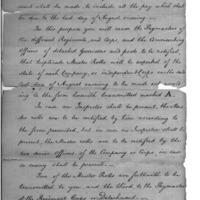 and shall be made to include all the pay which shall
be due to the last day of August ensuing.
For this purpose you will cause the Paymasters of
the different Regiments and Corps, and the Commanding
officers of detached Garrisons and posts to be notified,
that triplicate Muster Rolls will be expected of the
state of each Company, or independent Corps on the
last day of August ensuing to be made out according
to the form herewith transmitted marked A.
In case an Inspector shall be present, the Muster
rolls are to be certified by him according to
the form prescribed, but in case no Inspector shall be
present, the Muster rolls are to be certified by the
two senior officers of the Company or Corps, in case
so many shall be present.
Two of the Muster Rolls are forthwith to be
transmitted to you, and the third to the Paymaster
of the Regiment Corps or Detachment.